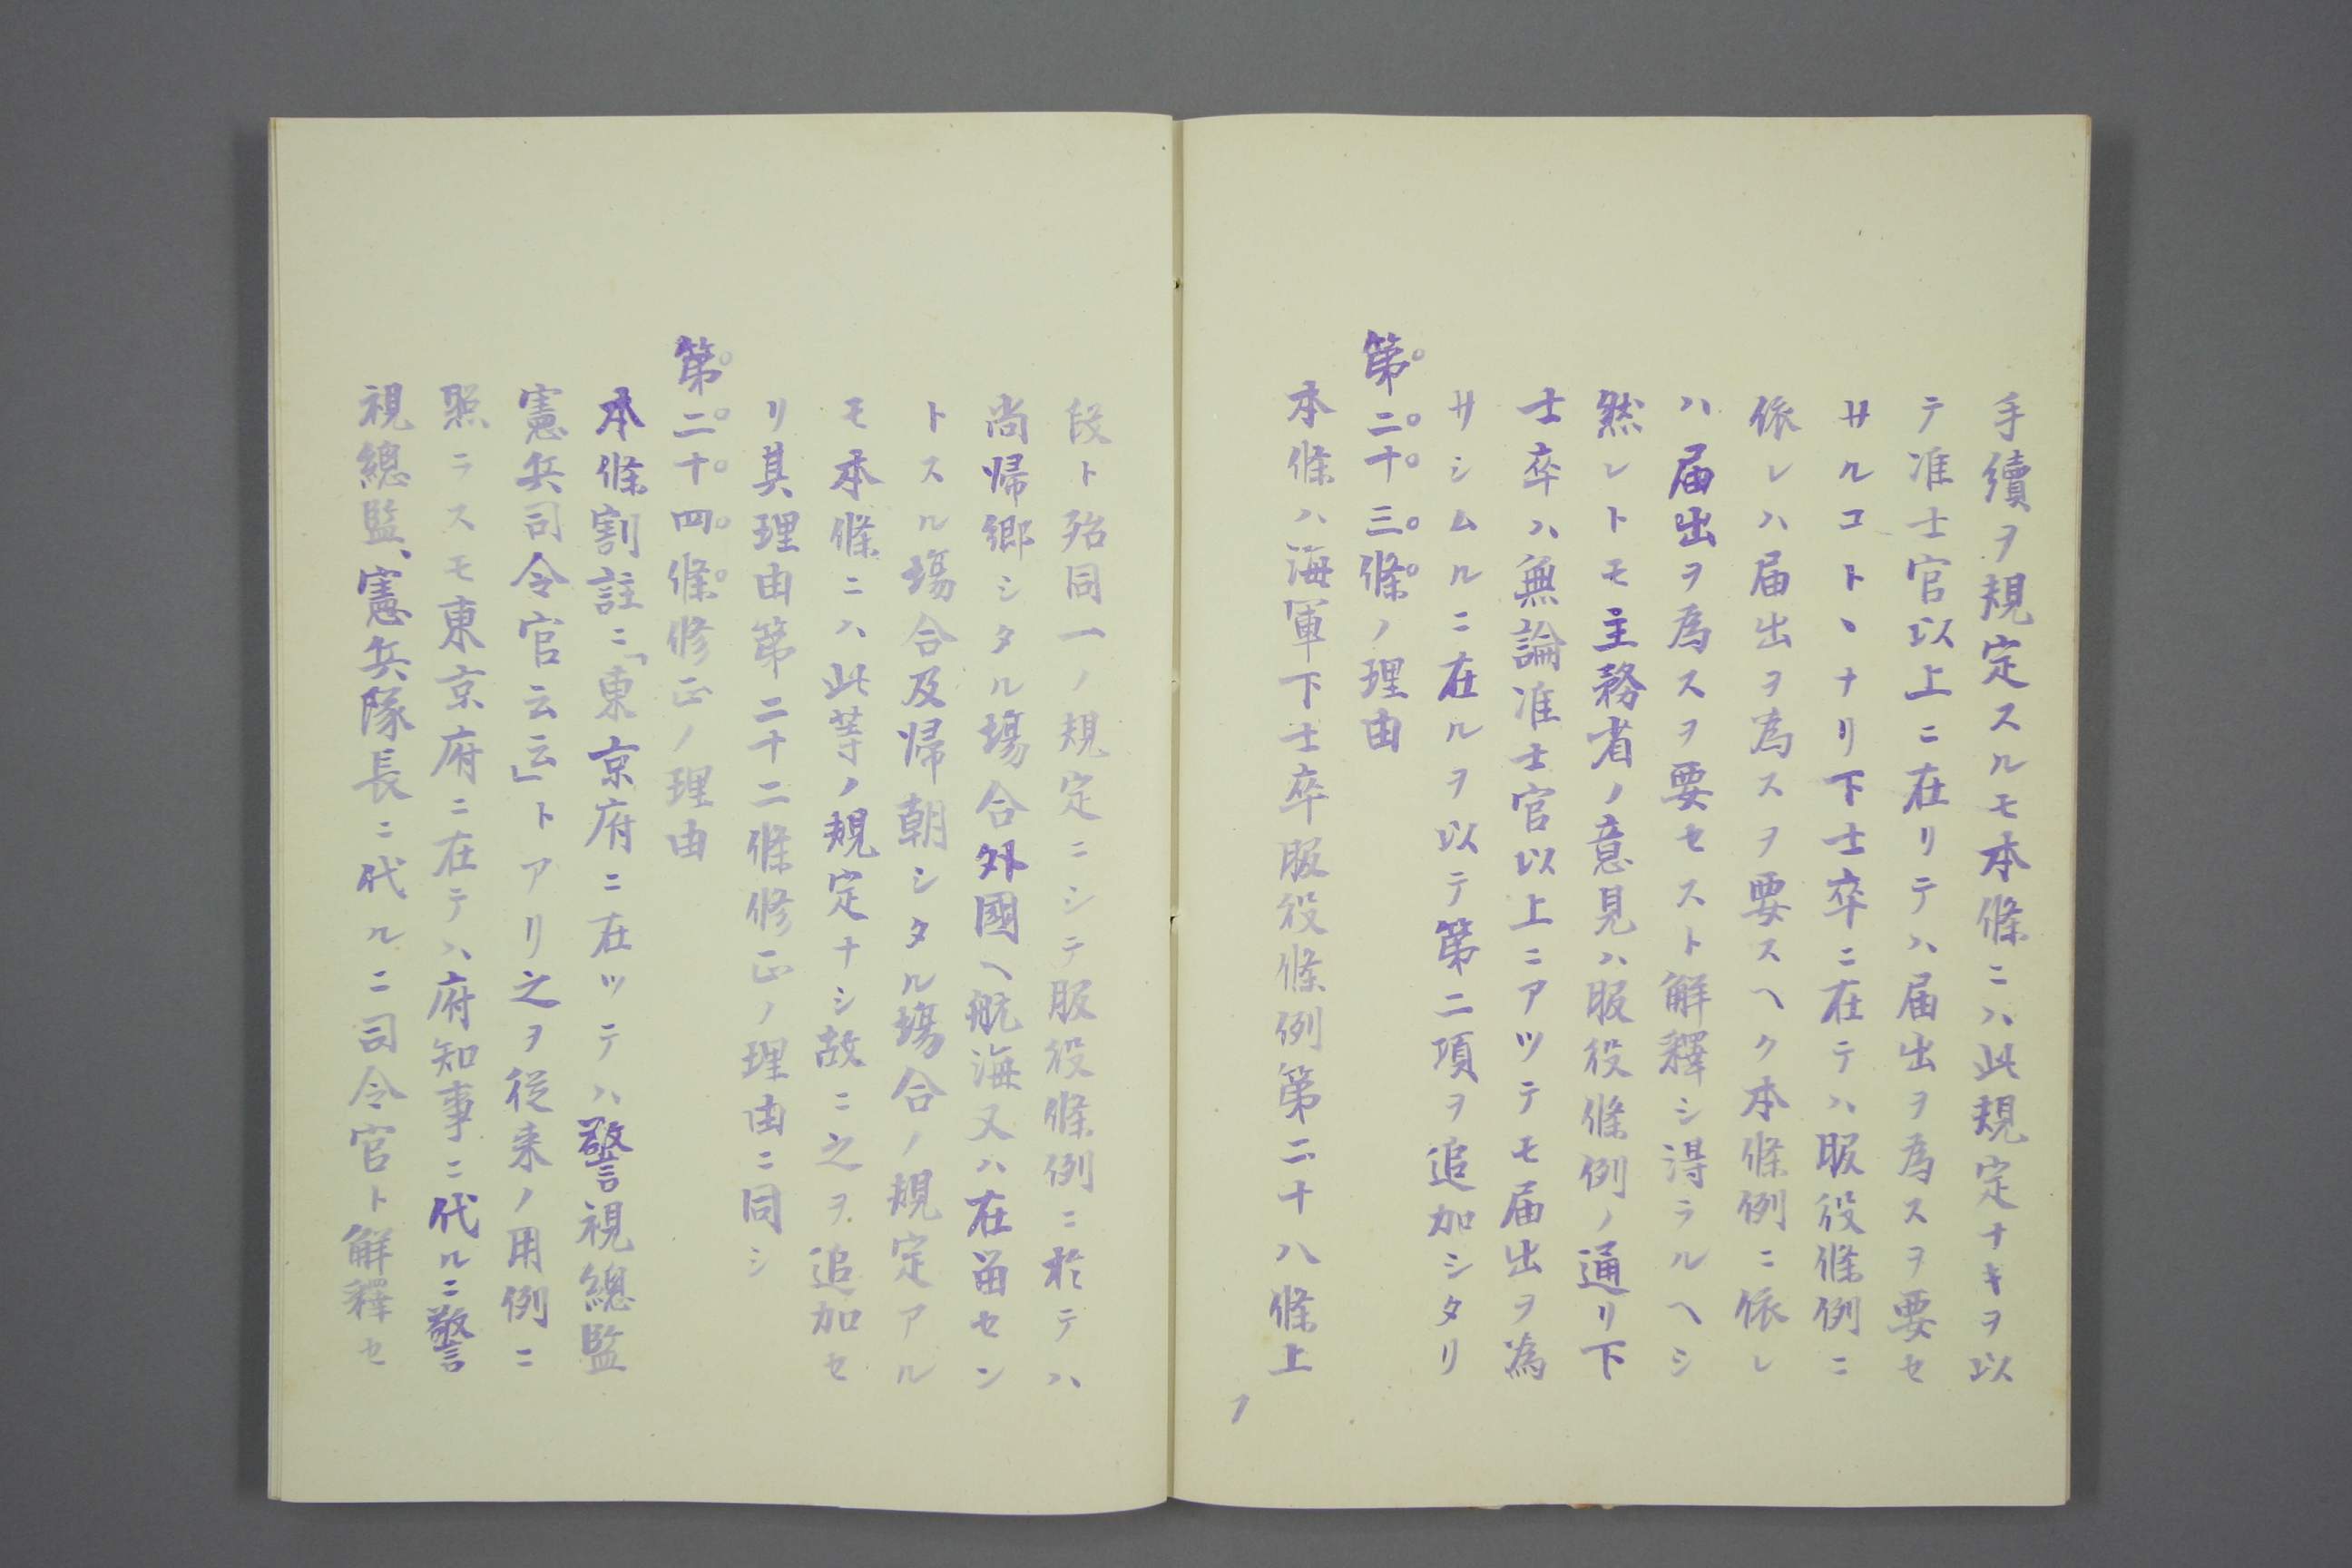 手續ヲ規定スルモ本條ニハ此規定ナキヲ以
テ准士官以上ニ在リテハ届出ヲ為スヲ要セ
サルコトヽナリ下士卒ニ在テハ服役條例ニ
依レハ届出ヲ為スヲ要スヘク本條例ニ依レ
ハ届出ヲ為スヲ要セスト解釋シ得ラルヘシ
然レトモ主務省ノ意見ハ服役條例ノ通リ下
士卒ハ無論准士官以上ニアツテモ届出ヲ為
サシムルニ在ルヲ以テ第二項ヲ追加シタリ
第二十三條ノ理由
本條ハ海軍下士卒服役條例第二十八條上
段ト殆同一ノ規定ニシテ服役條例ニ於テハ
尚帰郷シタル場合外國ヘ航海又ハ在留セン
トスル場合及帰朝シタル場合ノ規定アル
モ本條ニハ此等ノ規定ナシ故ニ之ヲ追加セ
リ其理由第二十二條修正ノ理由ニ同シ
第二十四條修正ノ理由
本條割註ニ「東京府ニ在ツテハ警視總監
憲兵司令官云云」トアリ之ヲ従来ノ用例ニ
照ラスモ東京府ニ在テハ府知事ニ代ルニ警
視總監、憲兵隊長ニ代ルニ司令官ト解釋セ